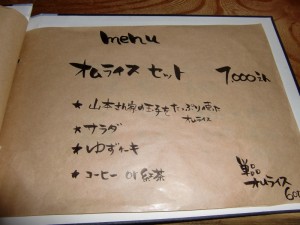 menu
オムライス セット 7,000さん
★ 山本さん家の玉子をたっぷり使った
オムライス
★ サラダ
★ ゆずケーキ
★ コーヒー or 紅茶
単品
オムライス